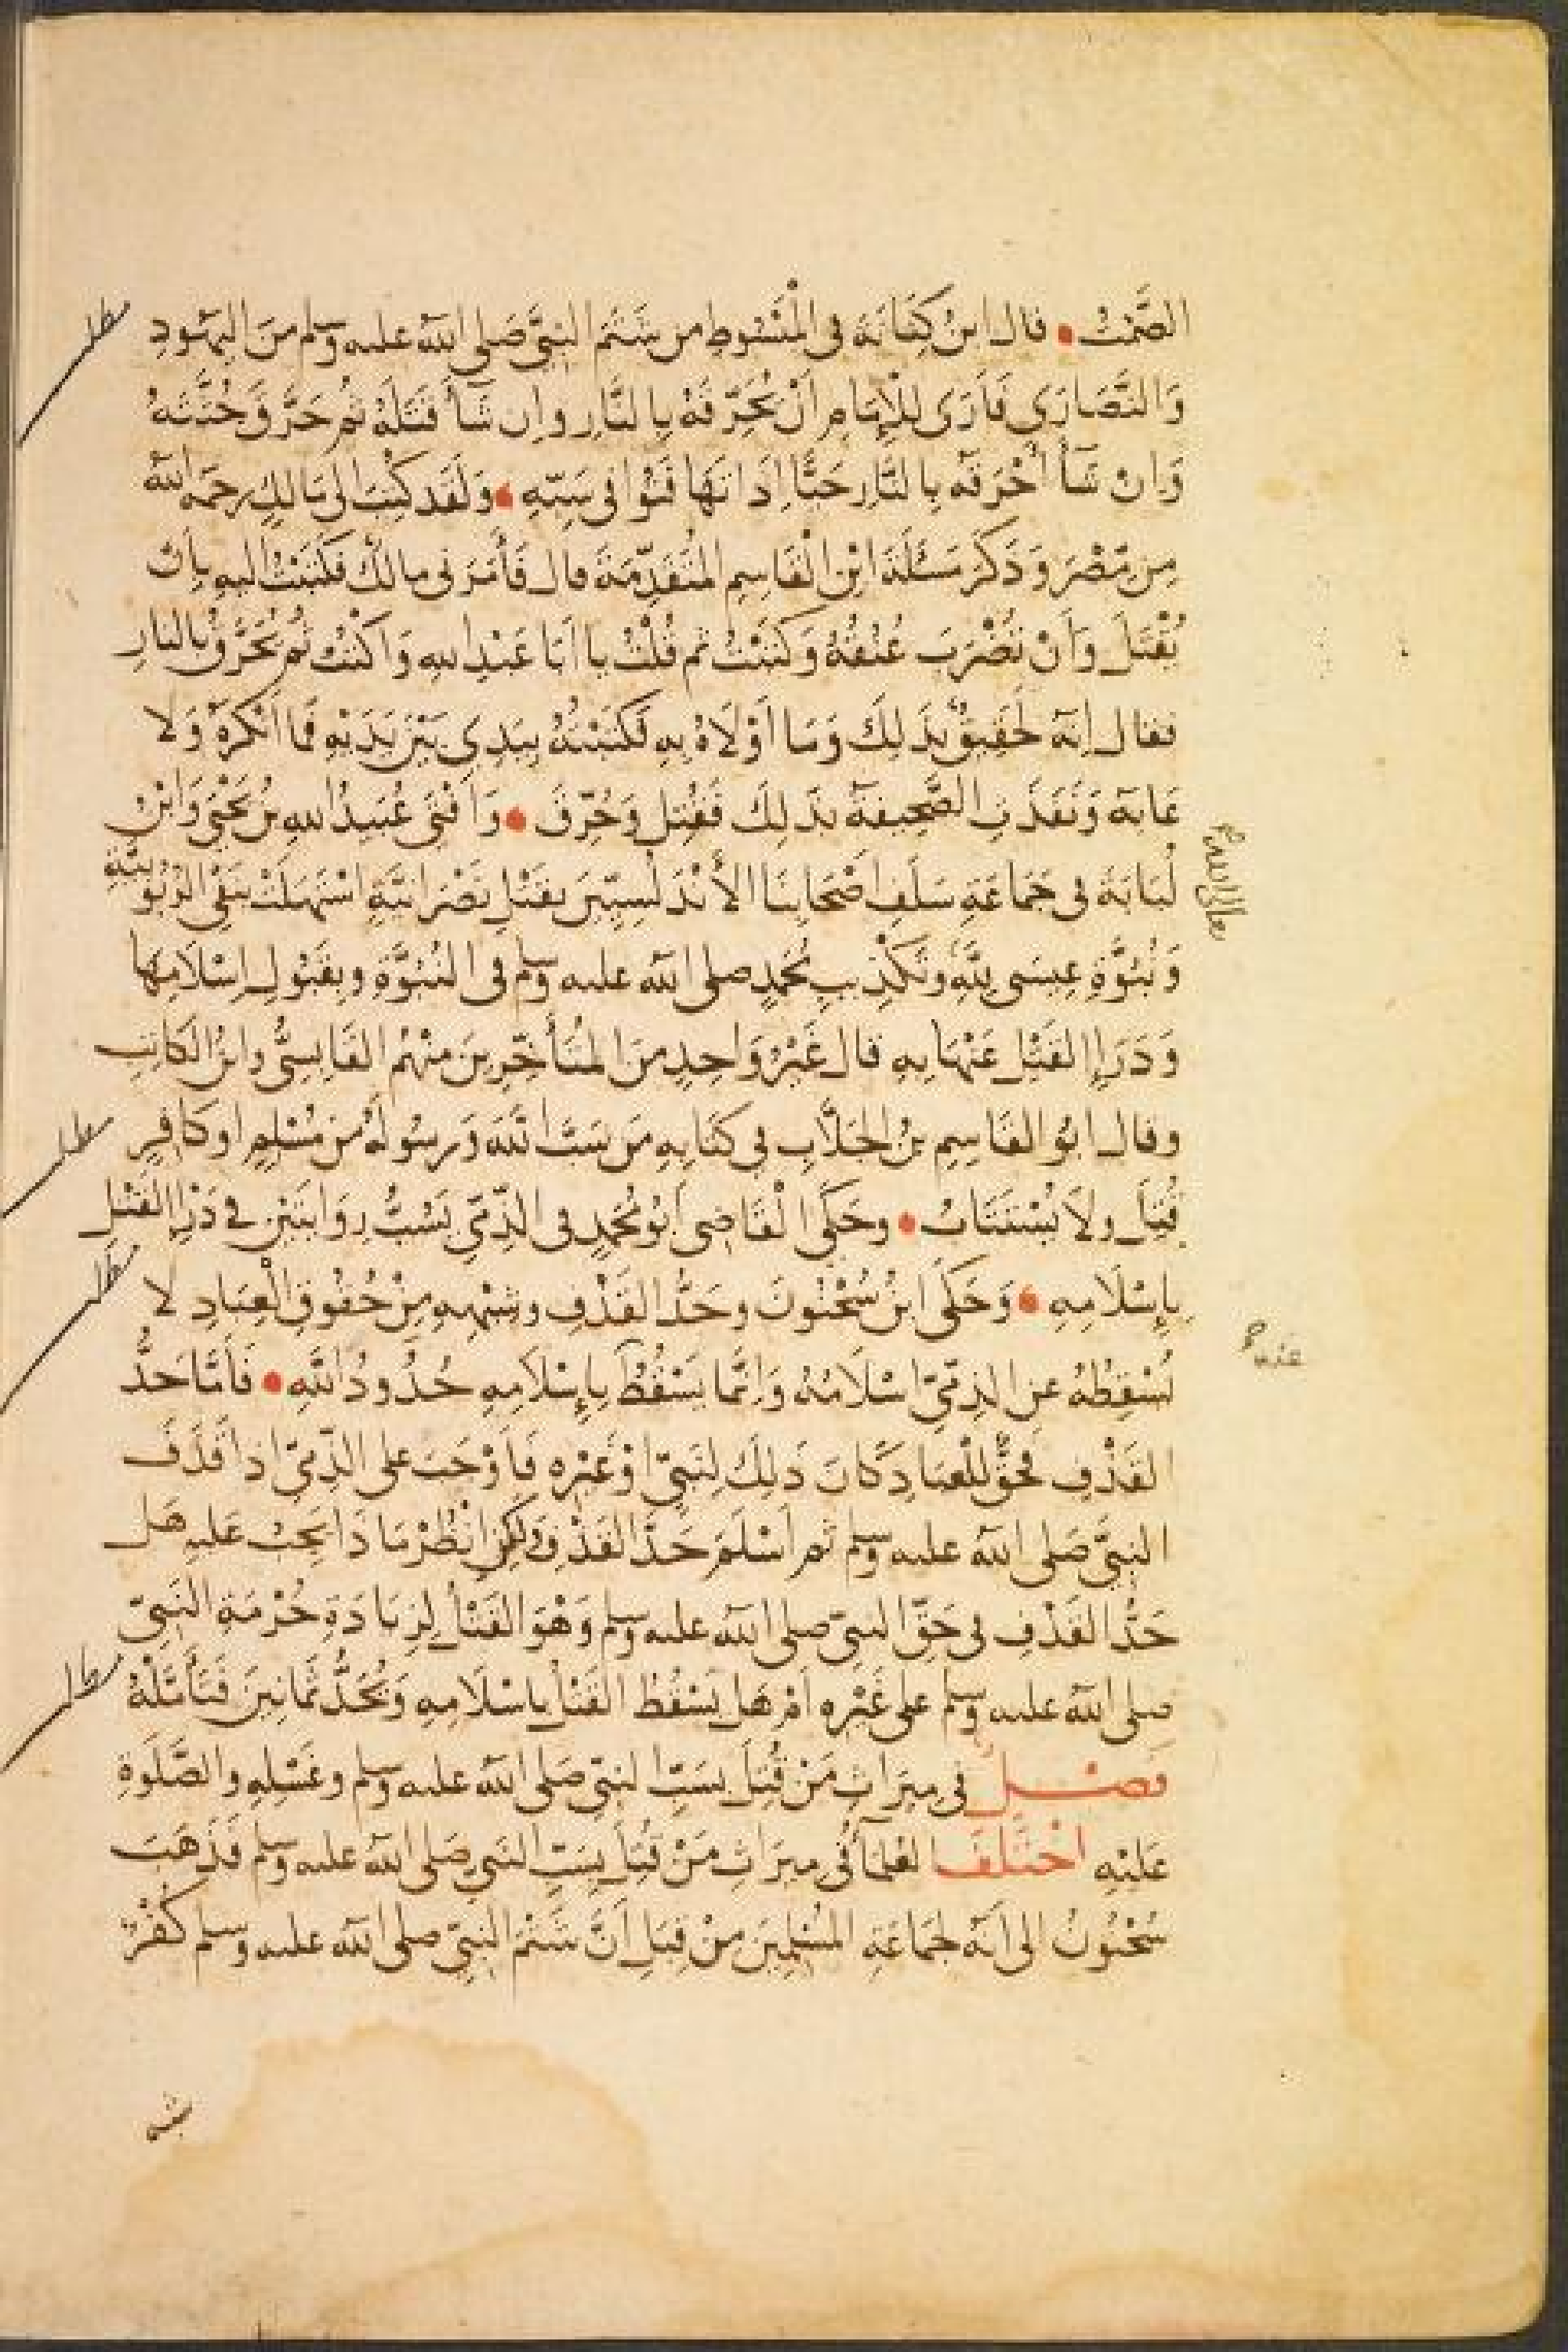 الصَّمْتُ • قال ابنُ كِنَانَةَ فى المَبْسُوطِ من شَتَمَ النبىَّ صَلى الله عليه وسلم منَ اليَهُودِ
وَالنَّصَارَى فَأَرَى لِلْإِمَامِ أَنْ يُحَرِّقَهُ بِالنَّارِ وإن شَآءَ قَتَلَهُ ثم حَرَّقَ جُثَّتَهُ
وَانْ شَآءَ أَحْرَقَهُ بِالنَّارِ حَيًّا إِذَا تَهَافَتُوا فى سَبِّهِ • وَلَقَد كُتِبَ الى مَالِكٍ رحمه الله
مِن مِصْرَ وَذَكَرَ مَسْئَلَةَ ابْنِ الْقَاسِمِ المُتَقَدِّمَةَ قال فَأَمَرَنى مالكٌ فَكَتَبْتُ اليه بِأَن
يُقْتَلَ وَأَنْ تُضْرَبَ عُنُقُهُ وَكَتَبْتُ ثم قُلْتُ يا ابَا عَبْدِ اللهِ وَاكْتُبْ ثُم يُحَرَّقُ بالنارِ
فقال إنه لَحَقِيقٌ بِذَلِكَ وَمَا أَوْلَاهُ بِهِ فَكَتَبْتُهُ بِيَدِى بَيْنَ يَدَيْهِ فَمَا أَنْكَرَهُ وَلا
عَابَهُ وَنَفَذَتِ الصَّحِيفَةُ بذَلِكَ فَقُتِلَ وَحُرِّقَ • وَأَفْتَى عُبَيدُ اللهِ بْنُ يَحْيَى وَابْنُ
لُبَابَةَ فى جَمَاعَةِ سَلَفِ اصْحَابِنَا الأَنْدَلُسِيِّينَ بقَتْلِ نَصْرَانِيَّةٍ اسْتَهَلَّتْ بنَفْىِ الرُّبُوبِيَّةِ
وَنُبُوَّةِ عِيسَى لِلَّهِ وتَكْذِيبِ مُحَمَّدٍ صلى الله عليه وسلم فى النُبُوَّةِ وبِقَبُولِ إِسْلَامِهَا
وَدَرَإِ القَتْلِ عَنْهَا بِهِ قال غَيْرُ وَاحِدٍ منَ المُتَأَخِّرِينَ مِنْهُم القَابِسِىُّ وابنُ الكَاتِبِ
وقال ابُو القَاسِمِ بنُ الجَلَّابِ فى كتَابِهِ مَن سَبَّ اللهَ وَرسُولَهُ مِن مُسْلِمٍ او كَافِرٍ
قُتِلَ ولاَ يُسْتَتَابُ • وحَكَى الْقَاضِى أبُو مُحَمدٍ فى الذِّمِّىِّ يَسُبُّ رِوَايَتَيْنِ فى دَرْإِ القَتْلِ
بِإِسْلَامِهِ • وَحَكَى ابنُ سُحْنُونَ وحَدُّ القَذْفِ وشِبْهِهِ مِنْ حُقُوقِ الْعِبَادِ لا
يُسْقِطُهُ عنِ الذِمِّىِّ اسْلَامُهُ وَإنَّمَا يَسْقُطُ بِإِسْلَامِهِ حُدُودُ اللهِ • فَأَمَّا حَدُّ
القَذْفِ فحَقٌّ لِلْعِبَادِ كانَ ذَلِكَ لنَبِىٍّ أوْ غَيْرِهِ فَأَوْجَبَ على الذِّمىِّ اذا قَذَفَ
النبِىَّ صَلى الله عليه وسلم ثم أَسْلَمَ حَدَّ القَذْفِ وَلكِنِ انْظُرْ مَاذَا يَجِبُ عَليهِ هَل
حَدُّ القَذْفِ فى حَقِّ النبىِّ صلى الله عليه وسلم وَهْوَ القَتْلُ لِزِيَادَةِ حُرْمَةِ النَبِىِّ
صلى الله عليه وسلم على غَيْرِهِ أَمْ هَل يَسْقُطُ القَتْلُ بِاسْلَامِهِ وَيُحَدُّ ثَمَانِينَ فَتَأَمَّلْهُ
فصْل فى مِيرَاثِ مَنْ قُتِلَ بِسَبِّ النبىِّ صَلى الله عليه وسلم وغَسْلِهِ والصَّلَوةِ
عَلَيْهِ اخْتَلَفَ العُلَمَآءُ فى مِيرَاثِ مَنْ قُتِلَ بِسَبِّ النبي صَلى الله عليه وسلم فَذَهَبَ
سُحْنُونُ الى أنَهُ لجَمَاعَةِ المُسْلِمِينَ مِنْ قِبَلِ أَنَّ شَتْمَ النبِىِّ صلى الله عليه وسلم كُفْرٌ